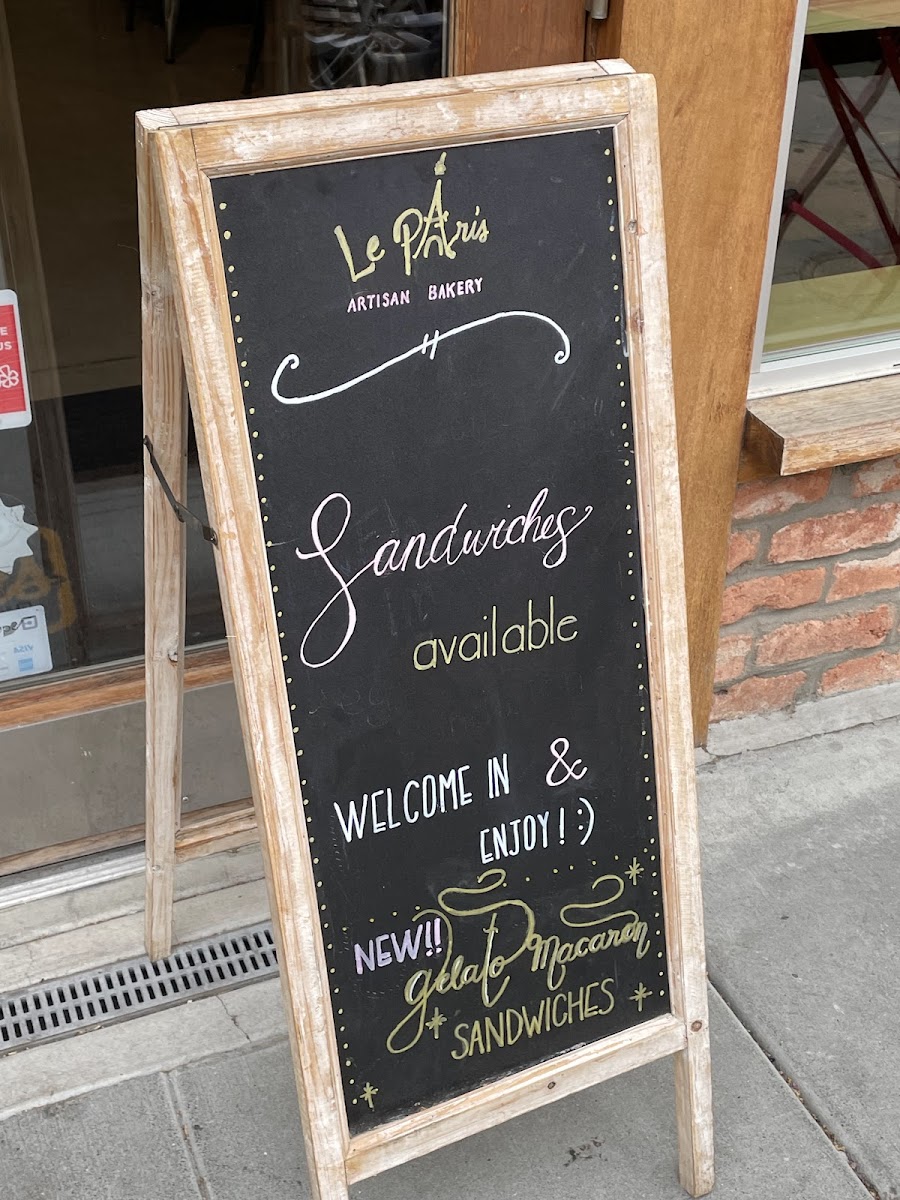 Le PAris
ARTISAN BAKERY
Sandwiches
available
WELCOME IN &
ENJOY! :)
NEW!!
gelato Macaron
SANDWICHES
E
US
VISA